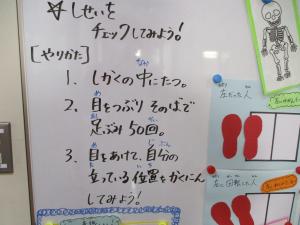 ☆しせいを
チェックしてみよう!
[やりかた]
1. しかくの中にたつ。
2. 目をつぶり そのばで
足ぶみ50回。
3. 目をあけて、自分の
立っている位置をかくにん
してみよう!
左だった人
左に回転した人